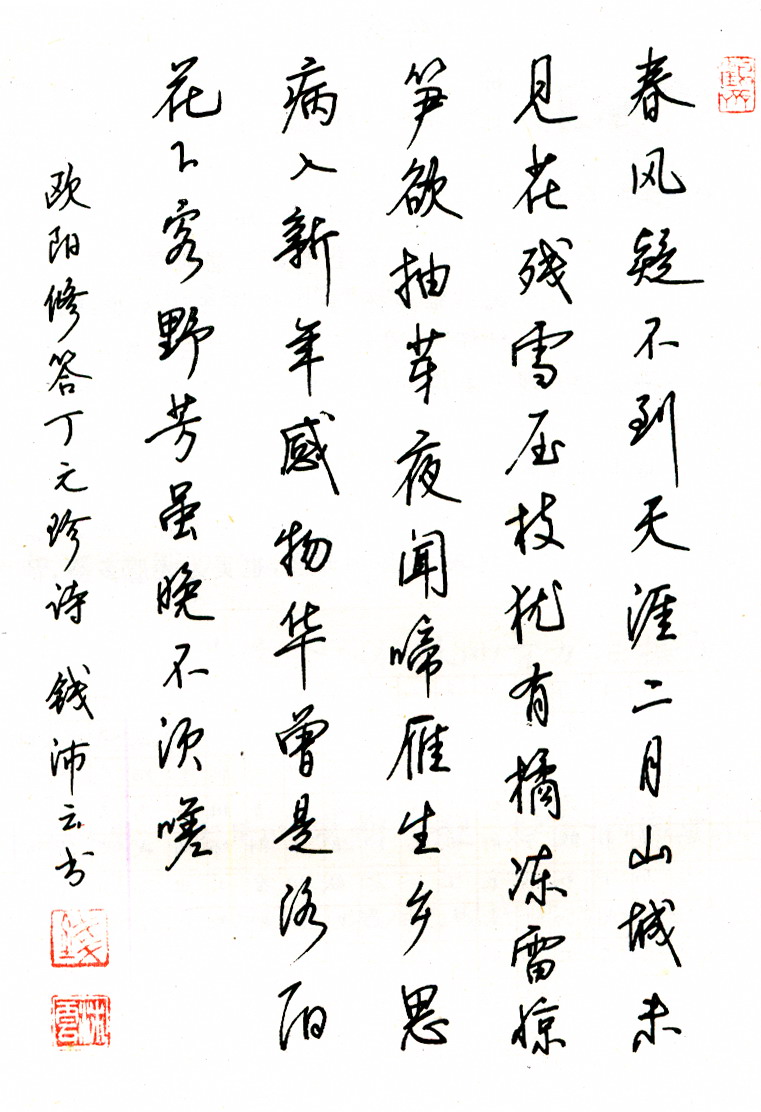 春风疑不到天涯二月山城未
见花残雪压枝犹有橘冻雷惊
笋欲抽芽夜闻啼雁生乡思
病入新年感物华曾是洛阳
花下客野芳虽晚不须嗟
欧阳修答丁元珍诗 钱沛云书